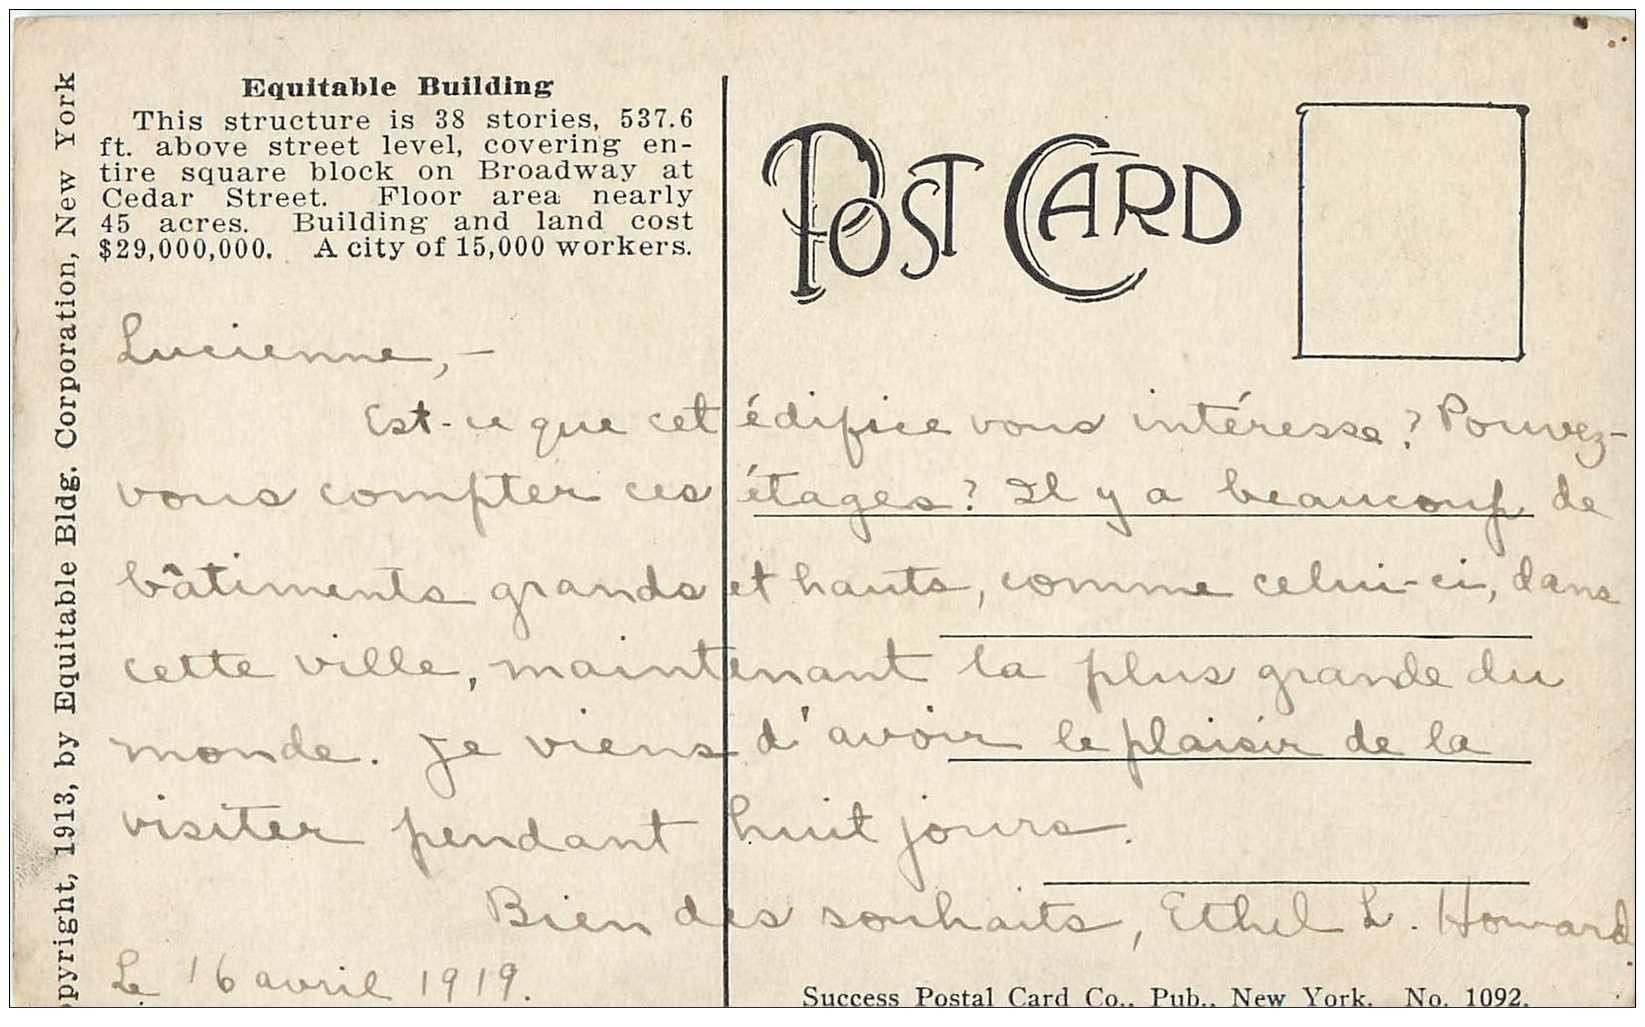 Equitable Building
This structure is 38 stories, 537.6
ft. above street level, covering en-
tire square block on Broadway at
Cedar Street. Floor area nearly
45 acres. Building and land cost
$29,000,000. A city of 15,000 workers.
POST CARD
opyright, 1913, by Equitable Bldg. Corporation, New York
Lucienne,-
Est-ce que cet édifice vous intéresse? Pouvez-
vous compter ces étages? Il y a beaucoup de
bâtiments grands et hauts, comme celui-ci, dans
cette ville, maintenant la plus grande du
monde. Je viens d'avoir le plaisir de la
visiter pendant huit jours.
Bien des souhaits, Ethel L. Howard.
Le 16 avril 1919.
Success Postal Card Co., Pub., New York. No. 1092.